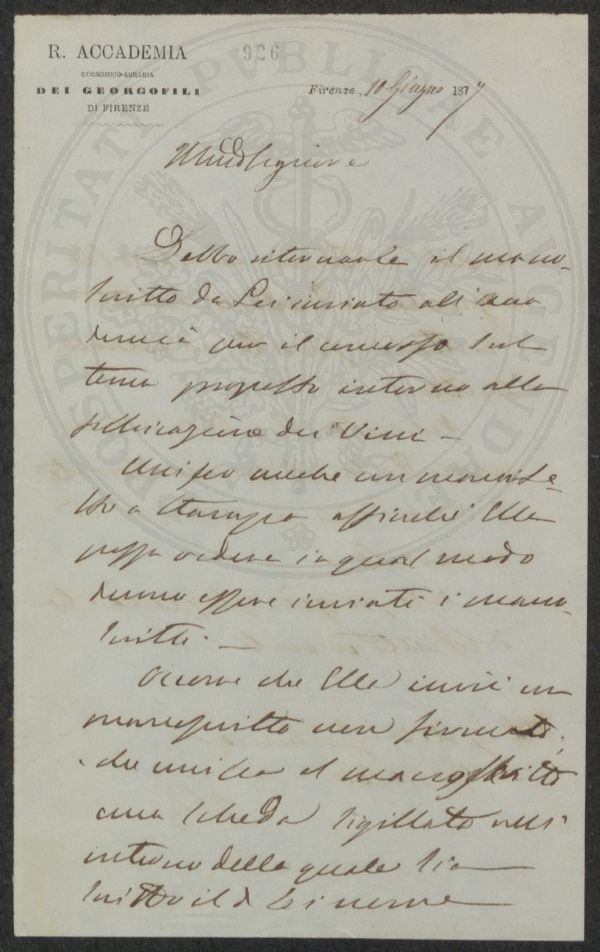 R. ACCADEMIA
ECONOMICO-AGRARIA
DEI GEORGOFILI
DI FIRENZE
926
Firenze, 10 Giugno 1877
PROSPERITATI PUBLICAE AUGENDAE
Signore
Debbo ritornarle il mano-
scritto da Lei inviato all'Acca
demia per il concorso sul
tema proposto intorno alla
fabbricazione dei Vini —
Unisco anche un manife-
sto a stampa affinché Ella
possa vedere in qual modo
devono essere inviati i mano-
scritti. —
Occorre che Ella invii un
manoscritto non firmato,
che unisca al manoscritto
una scheda sigillata nell'
interno della quale sia
scritto il di Lei nome